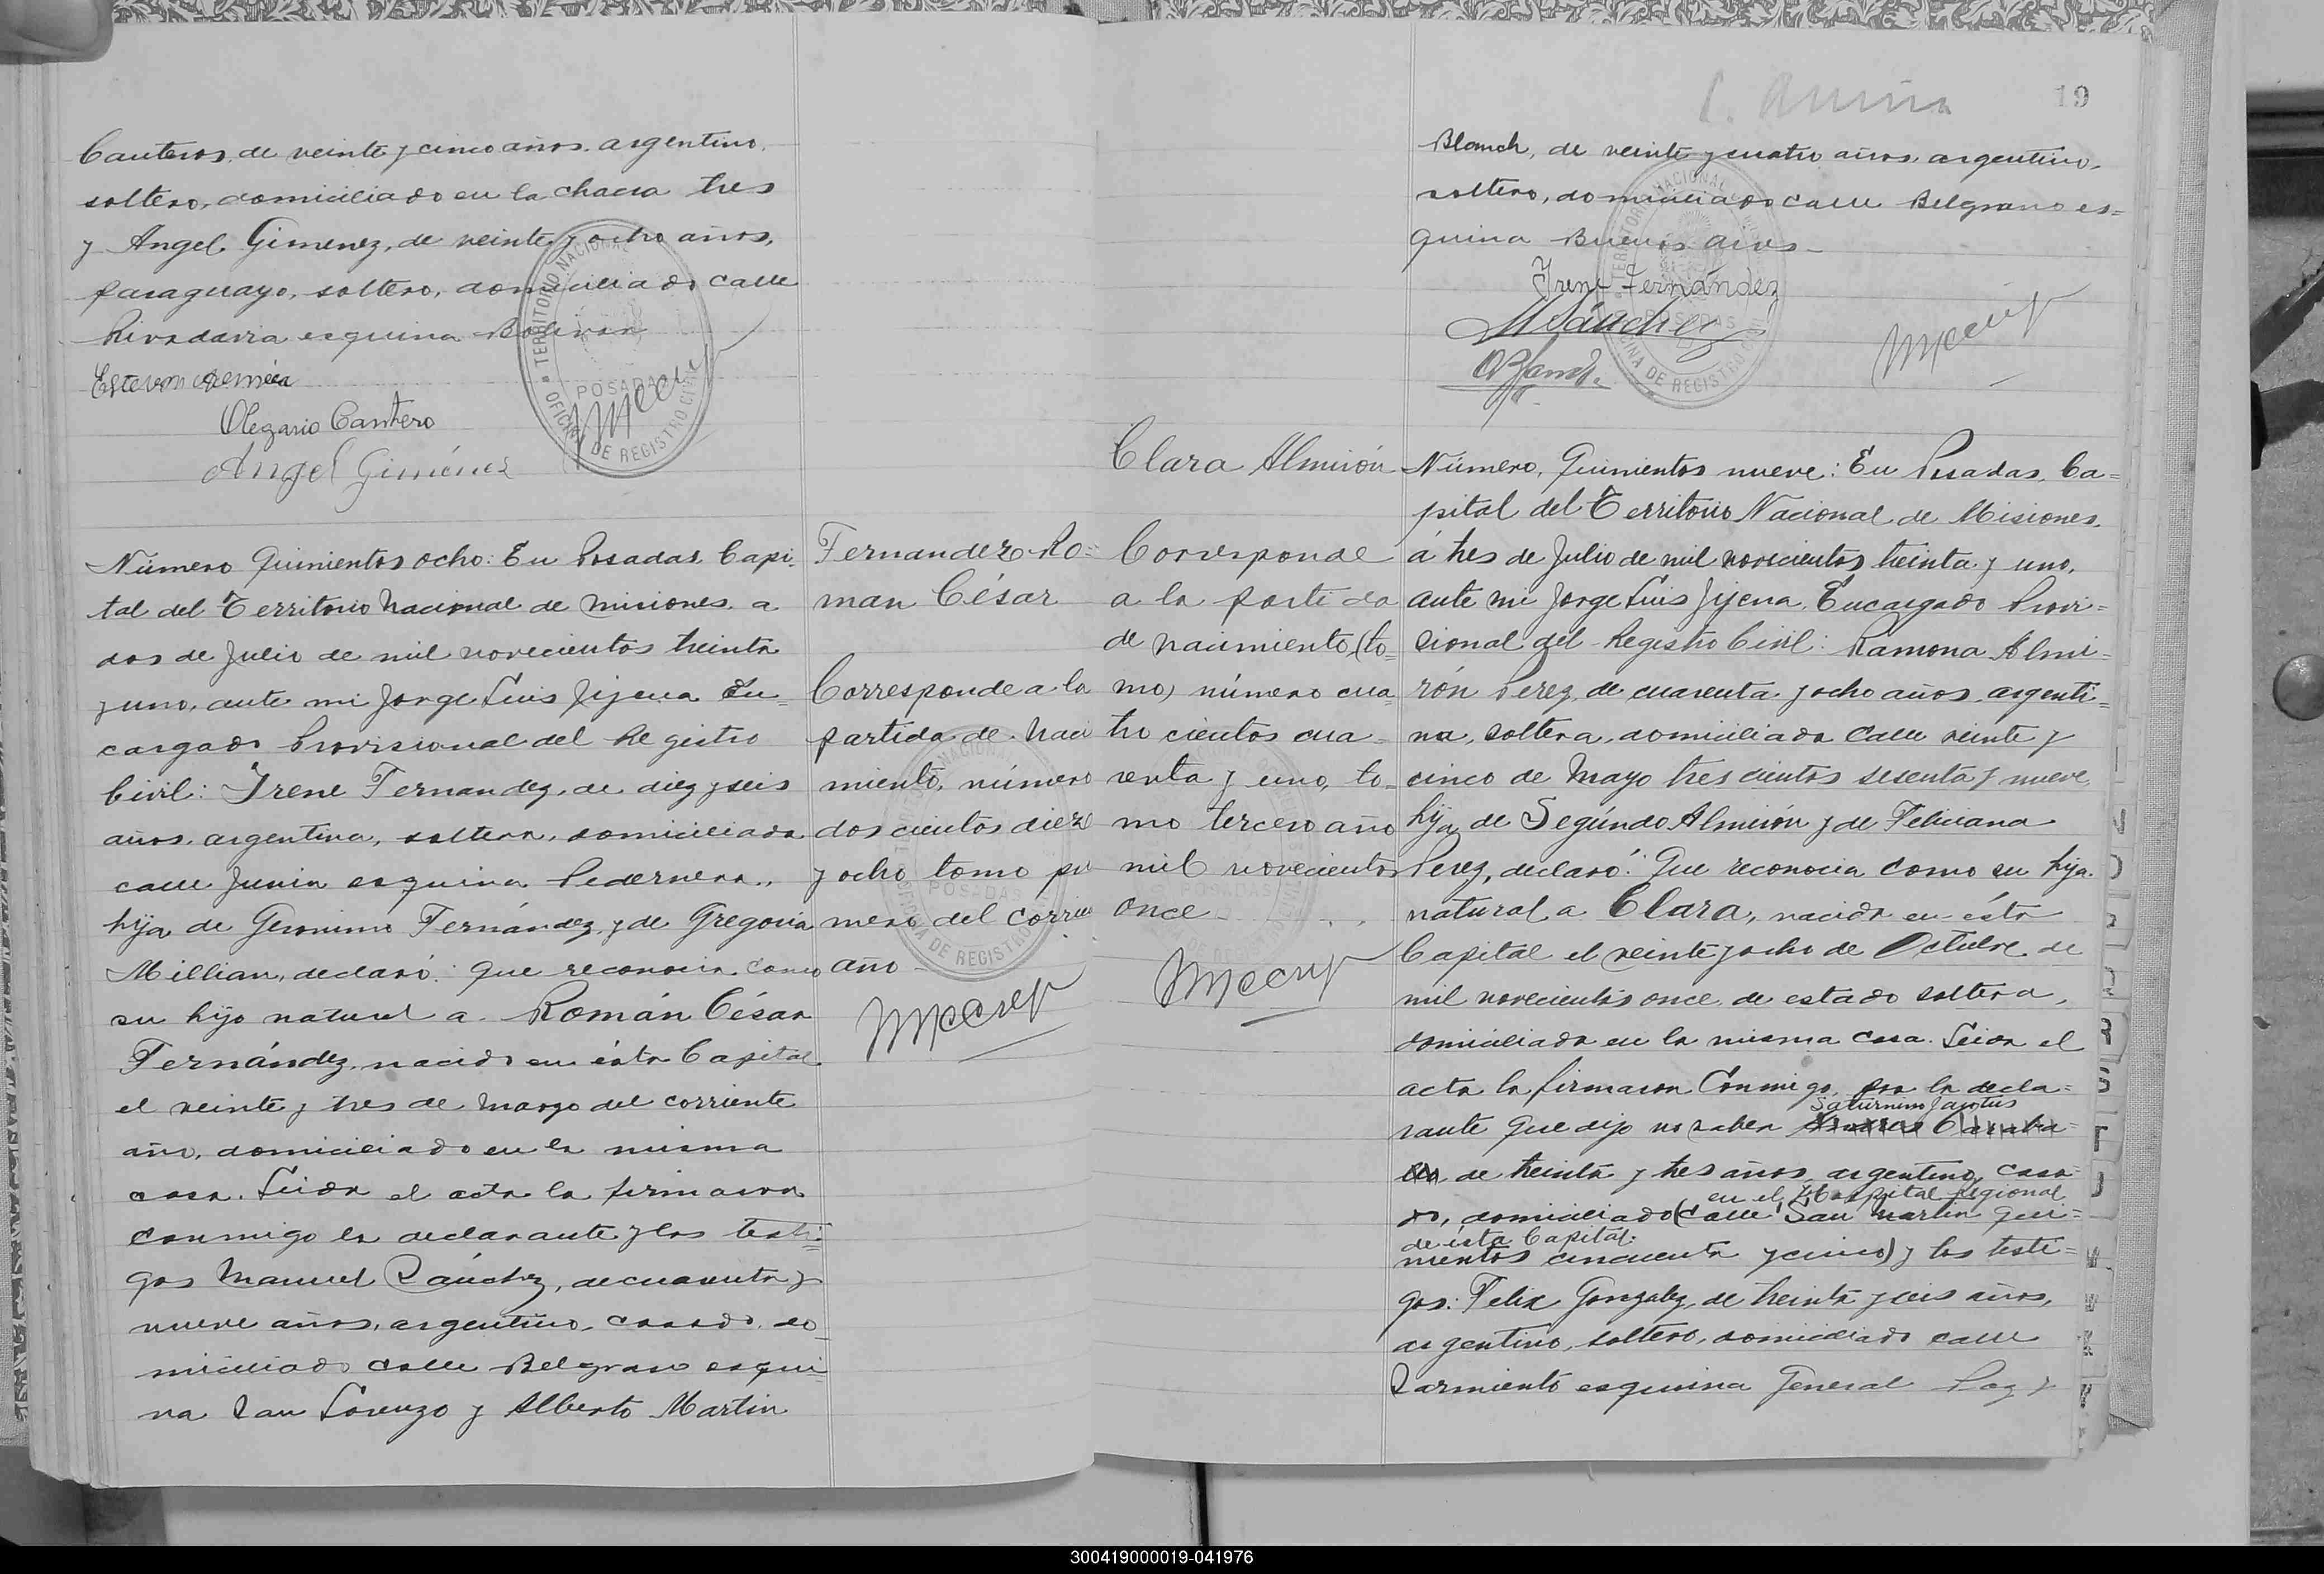 Canteros, de veinte y cinco años, argentino,
soltero, domiciliado en la chacra tres
y Angel Gimenez, de veinte y ocho años,
paraguayo, soltero, domiciliado calle
Rivadavia esquina Bolivar
Estevon
Olegario Cantero
Angel Giménez
TERRITORIO NACIONAL
POSADAS
OFICINA DE REGISTRO CIVIL
Número Quinientos ocho: En Posadas, Capi-
tal del Territorio Nacional de Misiones a
dos de Julio de mil novecientos treinta
y uno, ante mi Jorge Luis Jijena En-
cargado Provisional del Registro
Civil: Irene Fernandez, de diez y seis
años, argentina, soltera, domiciliada
calle Junin esquina Pedernera,
hija de Geronimo Fernández y de Gregoria
Millian, declaró: Que reconocia como
su hijo natural a Román César
Fernández, nacido en ésta Capital
el veinte y tres de Marzo del corriente
año, domiciliado en la misma
casa. Leida el acta la firmaron
conmigo la declarante y los testi=
gos Manuel Sánchez, de cuarenta y
nueve años, argentino, casado, do-
miciliado calle Belgrano esqui-
na San Lorenzo y Alberto Martin
Fernandez Ro=
man César
Corresponde a la
partida de naci
miento, número
doscientos diez
y ocho tomo pri
mero del corrien
año
19
Blanch, de veinte y cuatro años, argentino,
soltero, domiciliado calle Belgrano es=
quina Buenos Aires
Irene Fernández
MSánchez
Clara Almirón
Corresponde
a la partida
de nacimiento (to=
mo) número cua=
tro cientos cua=
renta y uno, to=
mo tercero año
mil novecientos
once
Número, Quinientos nueve: En Posadas, Ca=
pital del Territorio Nacional de Misiones,
á tres de Julio de mil novecientos treinta y uno,
ante mi Jorge Luis Jijena, Encargado Provi=
sional del Registro Civil: Ramona Almi=
rón Perez, de cuarenta y ocho años, argenti=
na, soltera, domiciliada calle veinte y
cinco de Mayo trescientos sesenta y nueve,
hija de Segúndo Almirón y de Feliciana
Perez, declaró: Que reconocia como su hija
natural a Clara, nacida en ésta
Capital el veinte y ocho de Octubre de
mil novecientos once, de estado soltera,
domiciliada en la misma casa. Leida el
acta la firmaron Conmigo, por la decla=
Saturnino
rante que dijo no saber
de treinta y tres años, argentino, casa=
en el Hospital Regional
do, domiciliado (calle San Martin Qui=
de ésta Capital.
nientos cincuenta y cinco) y los testi=
gos: Felix Gonzalez, de treinta y seis años,
argentino, soltero, domiciliado calle
Sarmiento esquina General Paz y
300419000019-041976